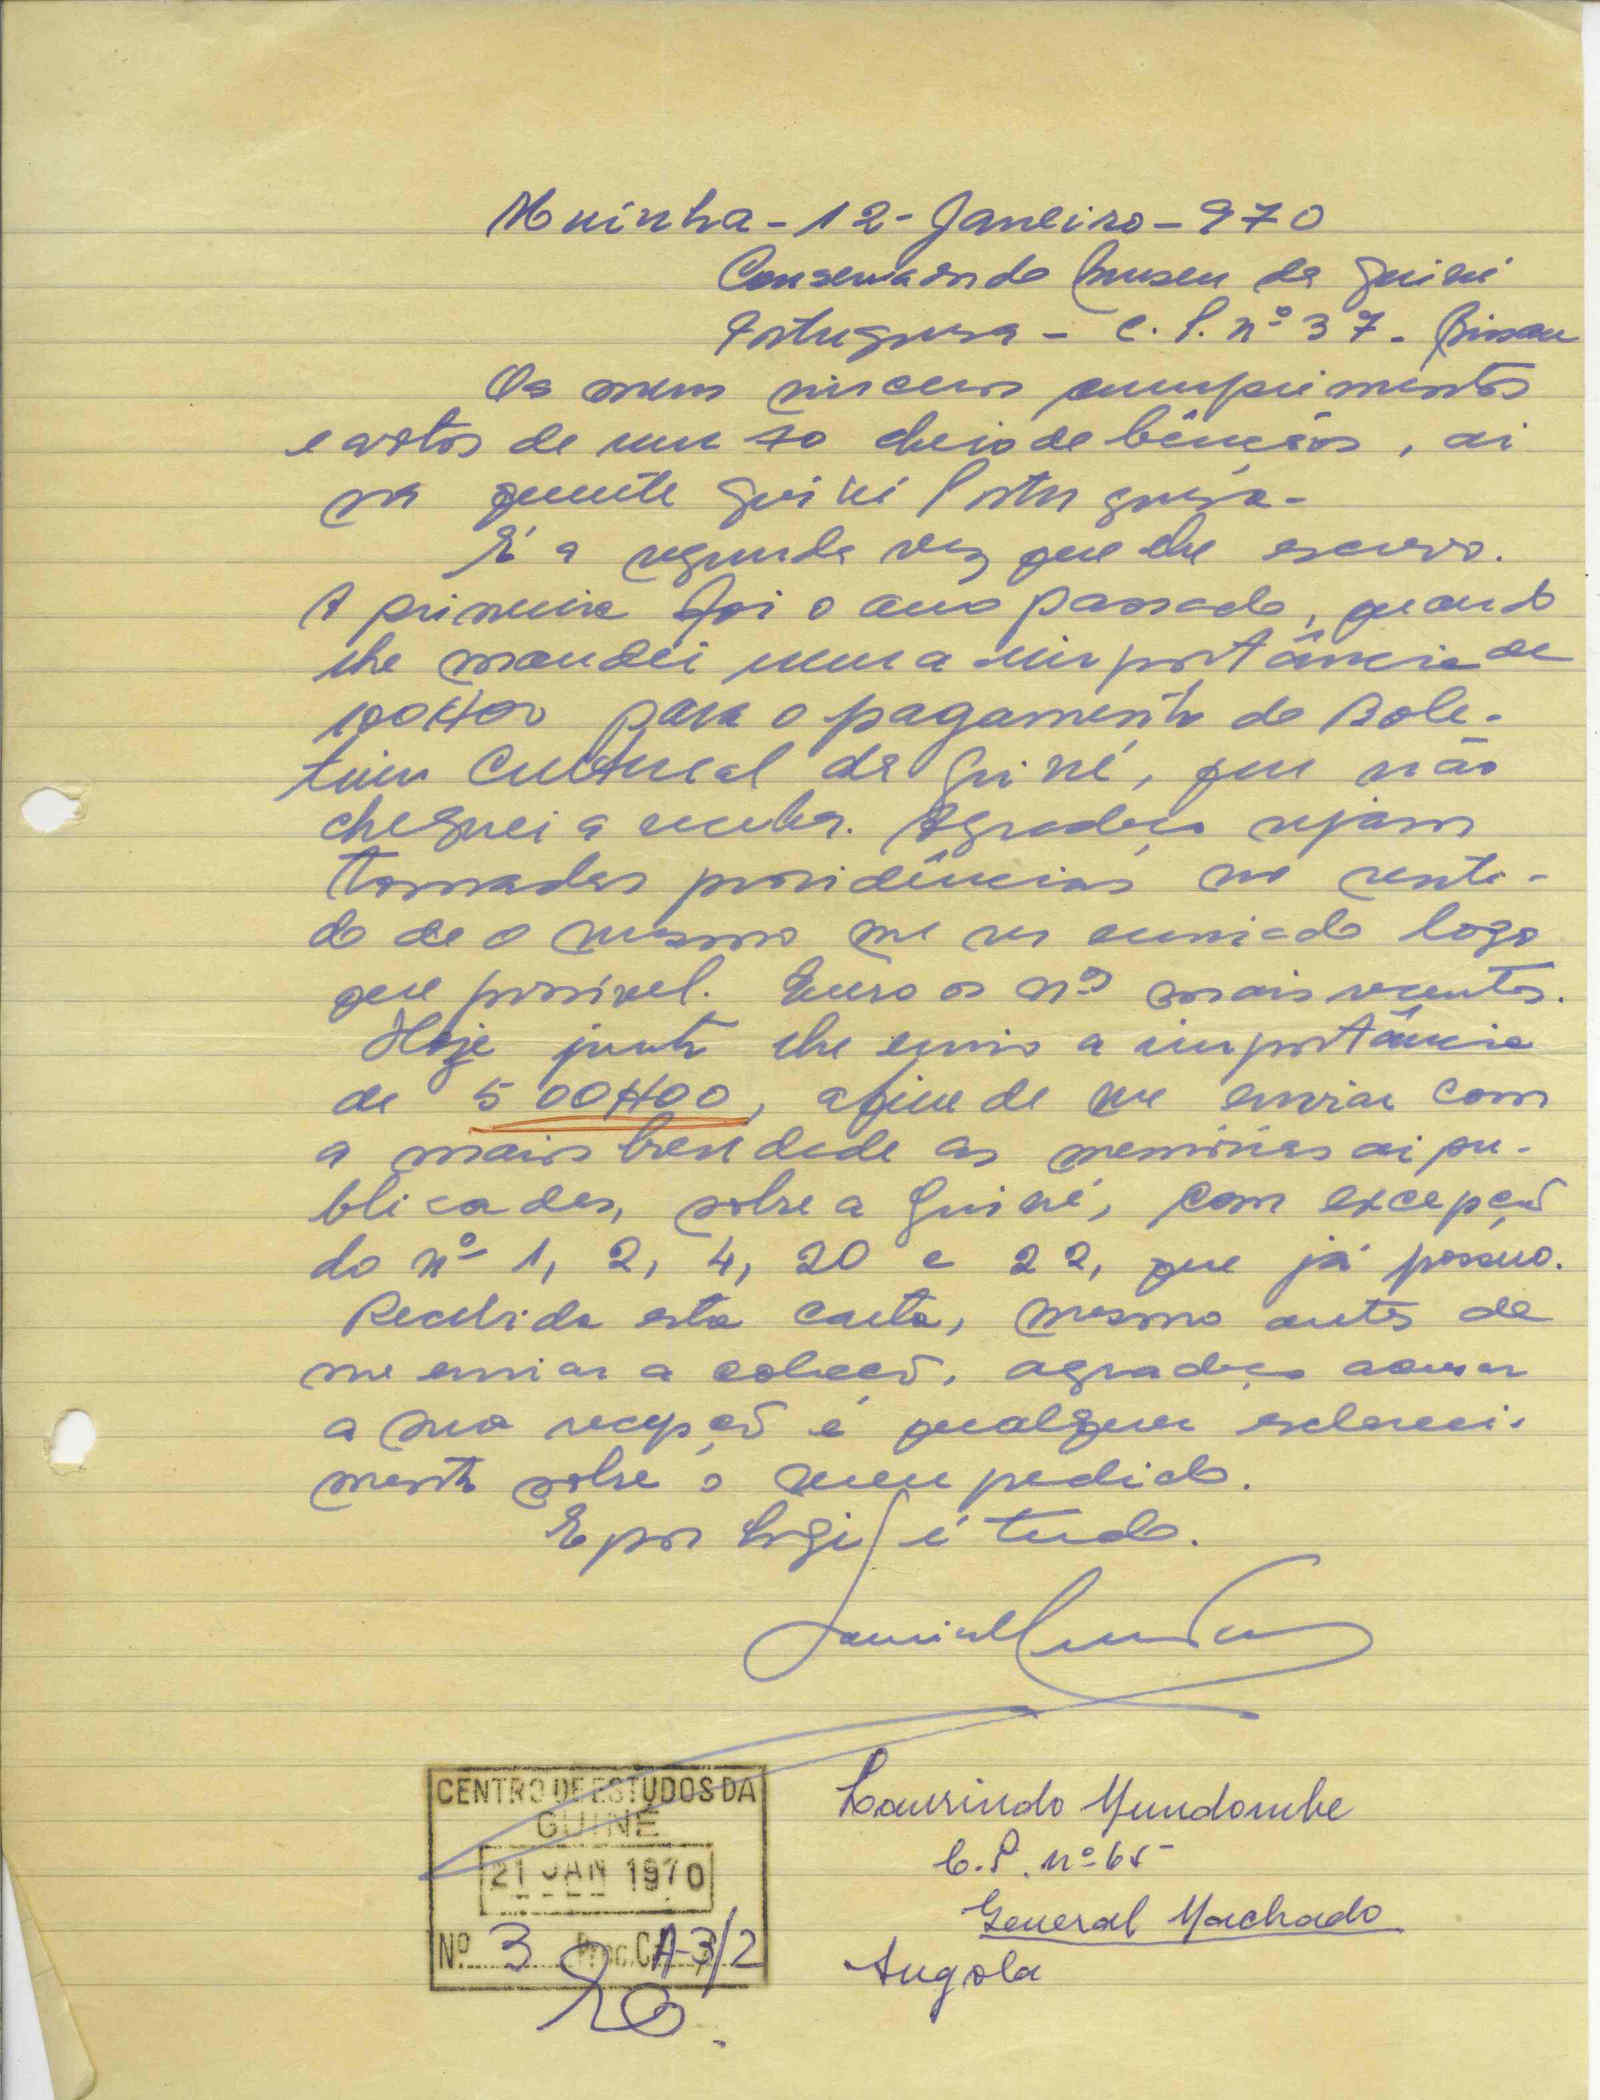 Muinha - 12 - Janeiro - 970
Conservador do Museu da Guiné
Portuguesa - C. P. nº 37 - Bissau
Os meus sinceros cumprimentos
e votos de um 70 cheio de bênçãos, aí
na quente Guiné Portuguesa -
É a segunda vez que lhe escrevo.
A primeira foi o ano passado, quando
lhe mandei uma importância de
100$00 para o pagamento do Bole-
tim Cultural da Guiné, que não
cheguei a receber. Agradeço sejam
tomadas providências no senti-
do de o mesmo me ser enviado logo
que possível. Quero os nºs mais recentes.
Hoje junto lhe envio a importância
de 500$00, afim de me enviar com
a maior brevidade as memórias aí pu-
blicadas, sobre a Guiné, com excepção
do nº 1, 2, 4, 20 e 22, que já possuo.
Recebida esta carta, mesmo antes de
me enviar a colecção, agradeço acusar
a sua recepção e qualquer esclareci-
mento sobre o meu pedido.
E por hoje é tudo.
CENTRO DE ESTUDOS DA
GUINÉ
21 JAN 1970
Nº 3 Proc. CA-3/2
Laurindo Mundombe
C. P. nº 65
General Machado
Angola